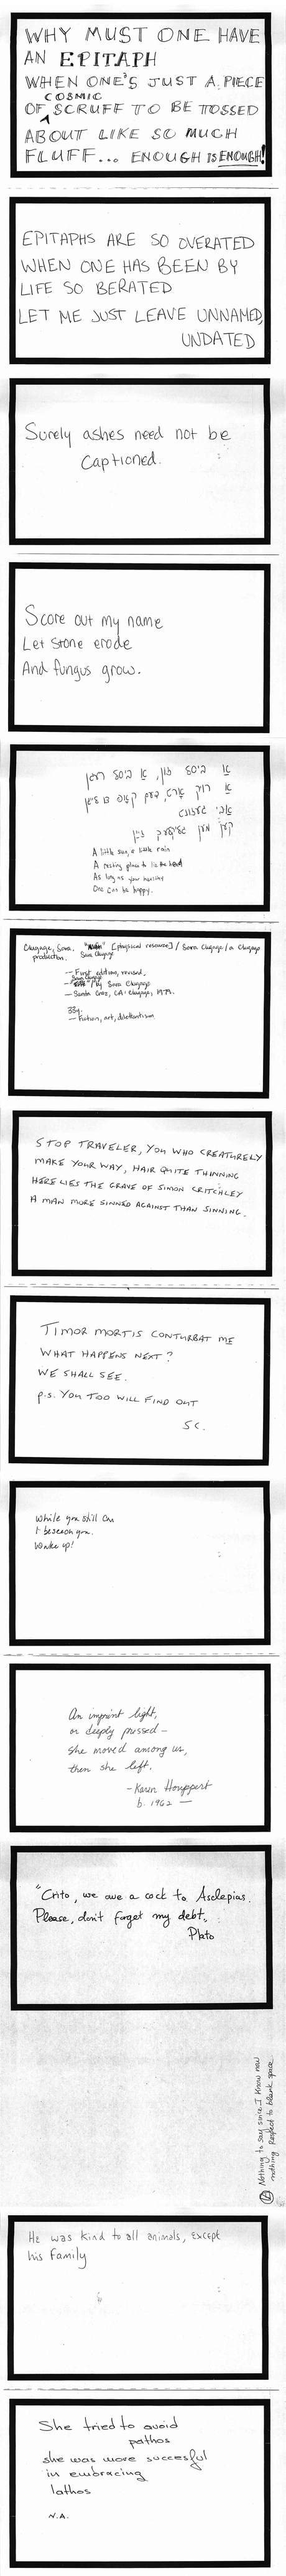 WHY MUST ONE HAVE
AN EPITAPH
WHEN ONE'S JUST A PIECE
COSMIC
OF SCRUFF TO BE TOSSED
ABOUT LIKE SO MUCH
FLUFF... ENOUGH IS ENOUGH!
EPITAPHS ARE SO OVERATED
WHEN ONE HAS BEEN BY
LIFE SO BERATED
LET ME JUST LEAVE UNNAMED,
UNDATED
Surely ashes need not be
Captioned.
Score out my name
Let stone erode
And fungus grow.
אַ ביסל זון, אַ ביסל רעגן
אַ
A little sun, a little rain
A resting place to lie the head
As long as your healthy
One can be happy.
Clugage, Sara. [physical resource] / Sara Clugage / a Clugage
Sara Clugage
production.
— First edition, revised,
Sara Clugage
by Sara Clugage
— Santa Cruz, CA: Clugage, 1979.
33y.
— Fiction, art, dilettantism
STOP TRAVELER, YOU WHO CREATURELY
MAKE YOUR WAY, HAIR QUITE THINNING
HERE LIES THE GRAVE OF SIMON CRITCHLEY
A MAN MORE SINNED AGAINST THAN SINNING.
TIMOR MORTIS CONTURBAT ME
WHAT HAPPENS NEXT?
WE SHALL SEE.
P.S. YOU TOO WILL FIND OUT
SC.
While you still can
I beseech you.
Wake up!
An imprint light,
or deeply pressed —
she moved among us,
then she left.
- Karen Houppert
b. 1962 —
"Crito, we owe a cock to Asclepias.
Please, don't forget my debt."
Plato
Nothing to say since I know now
nothing Respect to blank space
He was kind to all animals, except
his family
She tried to avoid
pathos
she was more succesful
in embracing
lathos
N.A.